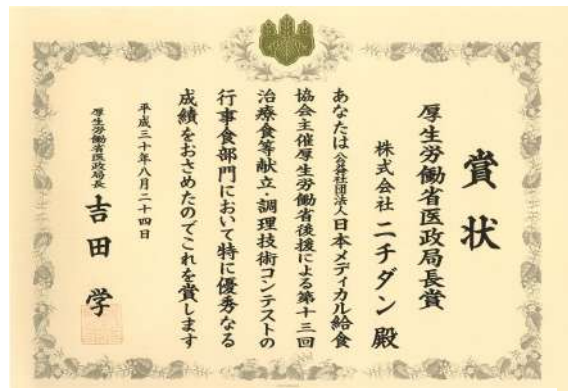 賞状
厚生労働省医政局長賞
株式会社 ニチダン 殿
あなたは公益社団法人日本メディカル給食
協会主催厚生労働省後援による第十三回
治療食等献立・調理技術コンテストの
行事食部門において特に優秀なる
成績をおさめたのでこれを賞します
平成三十年八月二十四日
厚生労働省医政局長 吉田 学